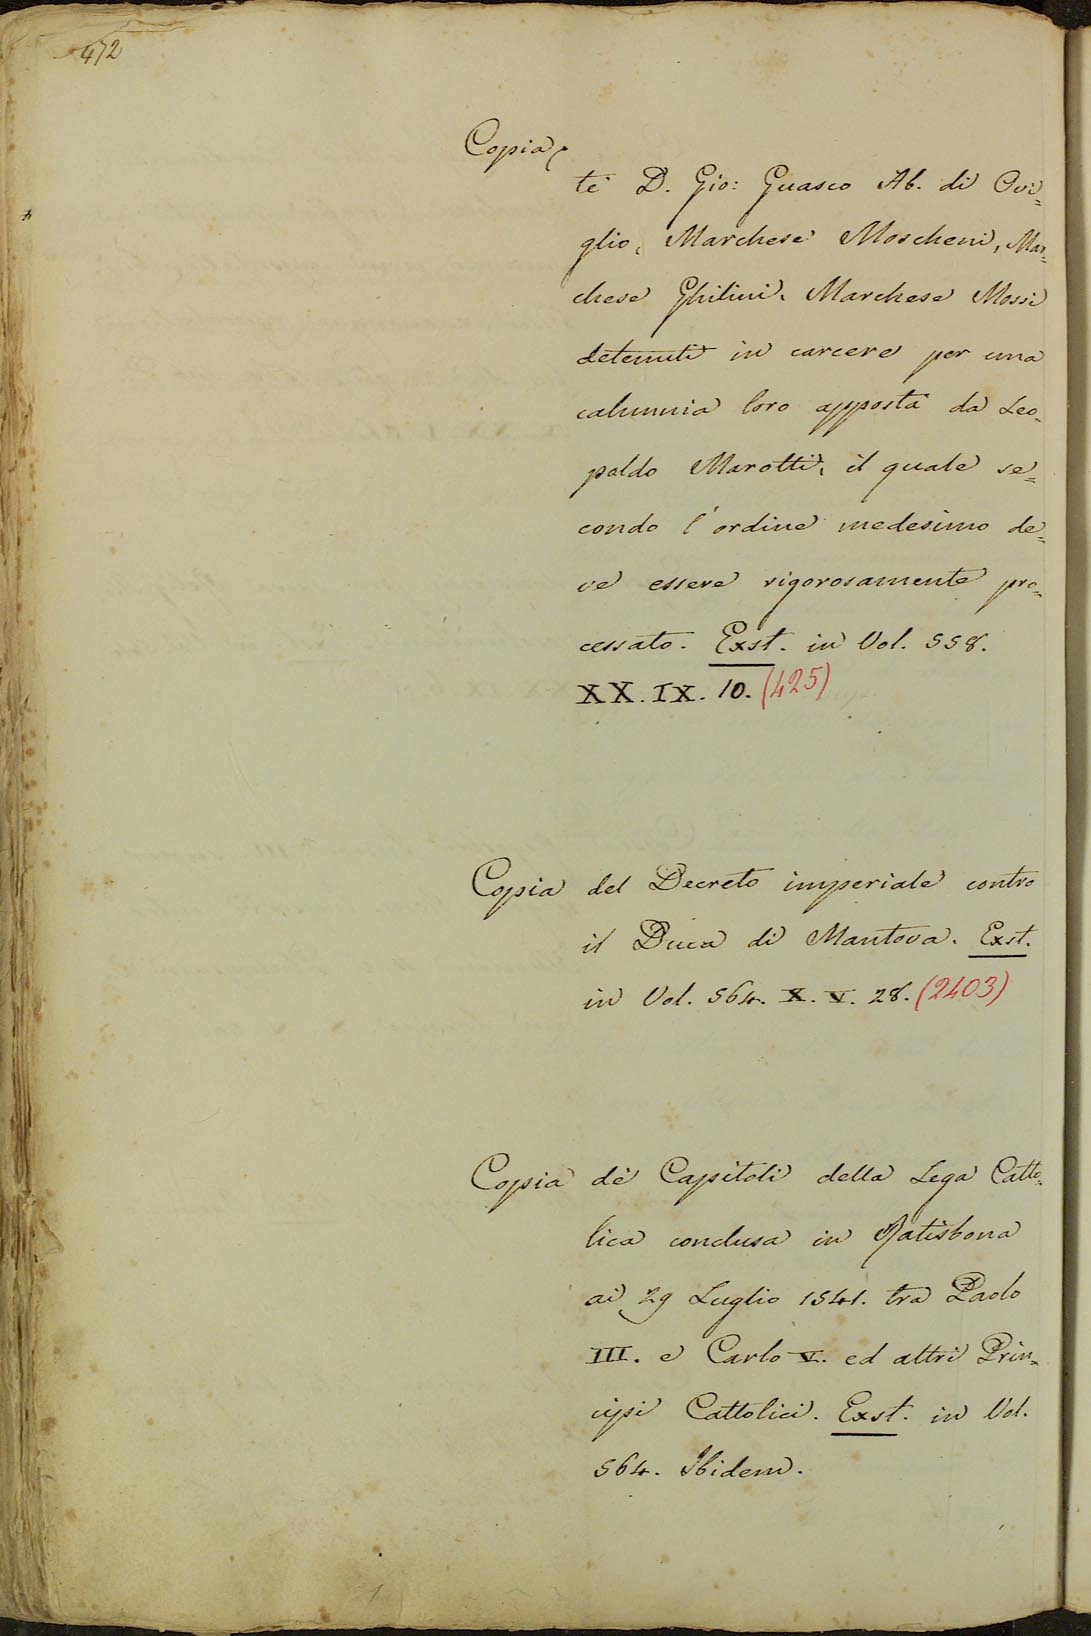 472
Copia
te D. Gio: Guasco Ab. di Ovi=
glio, Marchese Moscheni, Mar=
chese Ghilini, Marchese Mossi
detenuti in carcere per una
calunnia loro apposta da Leo=
poldo Marotti, il quale se=
condo l'ordine medesimo de=
ve essere rigorosamente pro=
cessato. Exst. in Vol. 558.
XX. IX. 10. (425)
Copia del Decreto imperiale contro
il Duca di Mantova. Exst.
in Vol. 564. X. V. 28. (2403)
Copia dè Capitoli della Lega Catto=
lica conclusa in Ratisbona
ai 29 Luglio 1541. tra Paolo
III. e Carlo V. ed altri Prin=
cipi Cattolici. Exst. in Vol.
564. Ibidem.